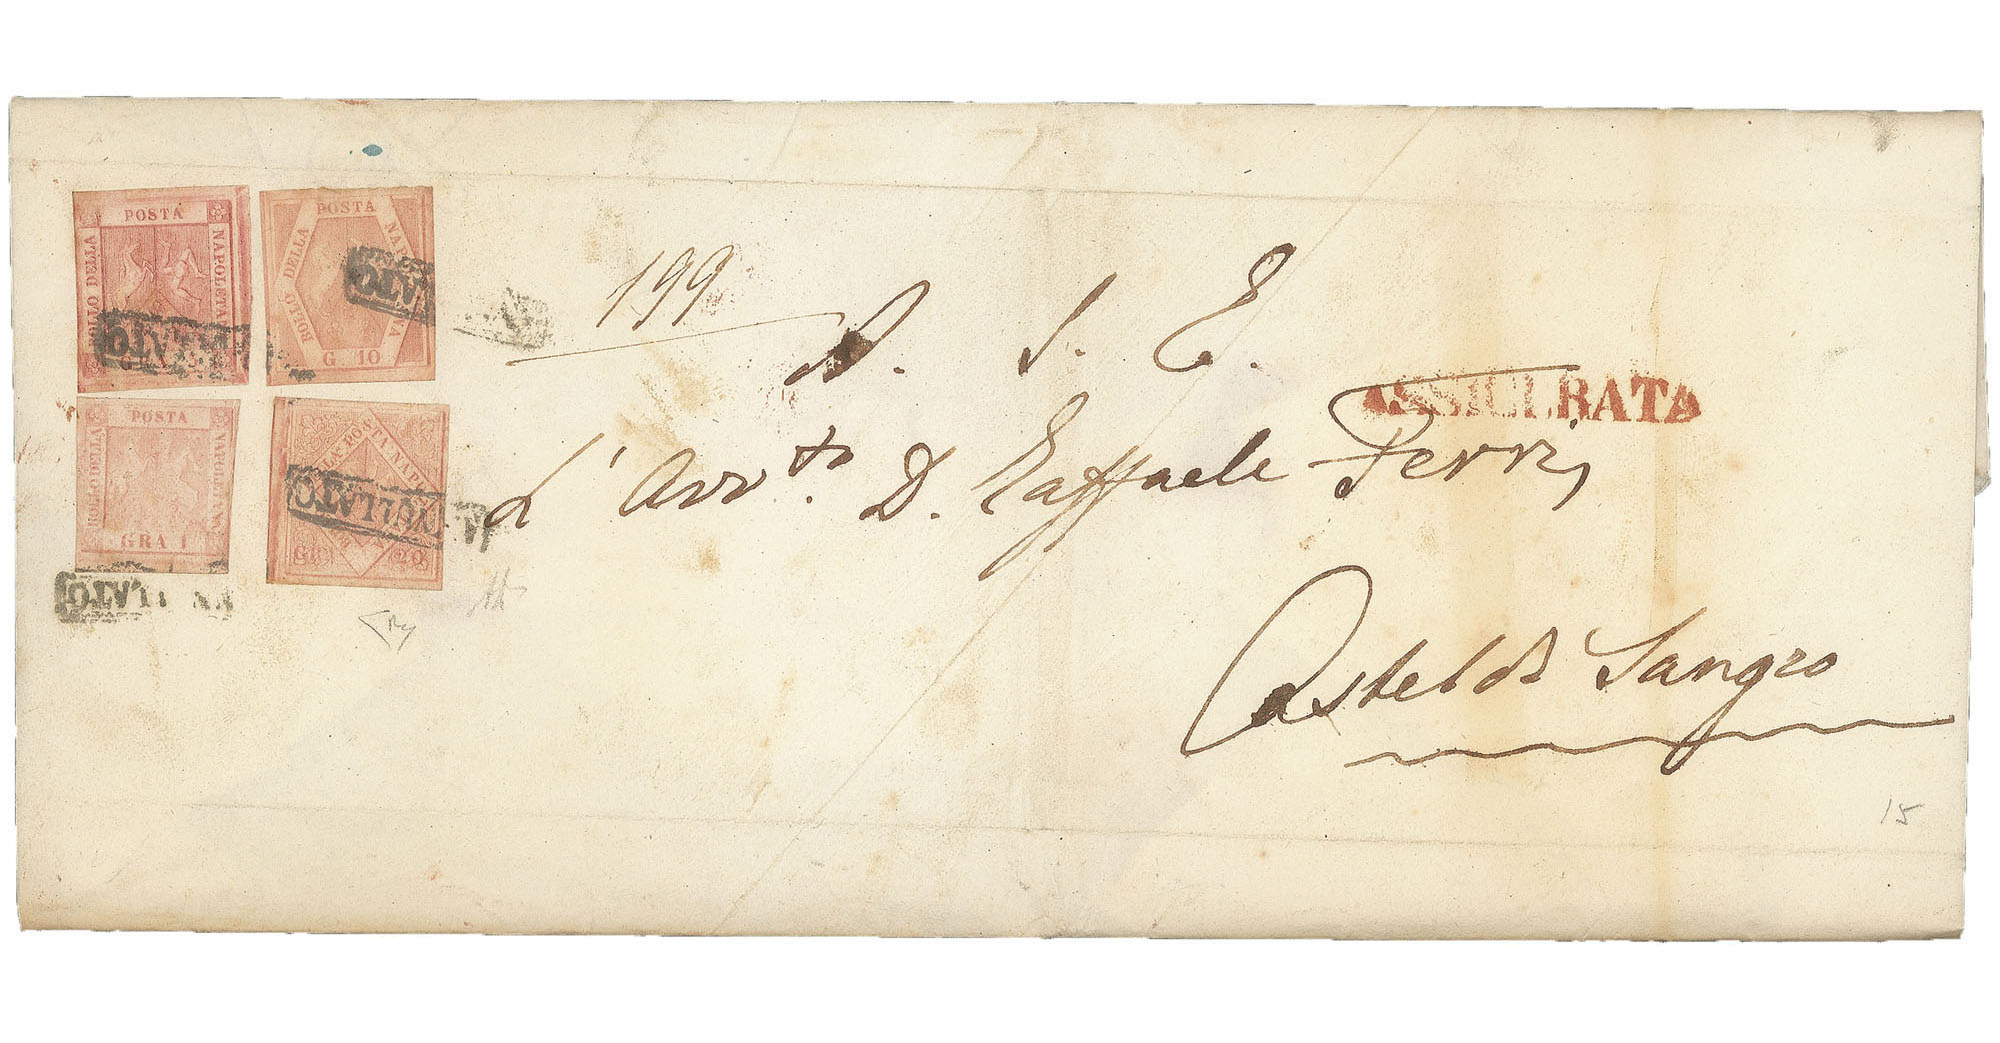 POSTA
BOLLO DELLA
NAPOLETANA
ANNULLATO
POSTA
BOLLO DELLA
NAPOLETANA
G 10
ANNULLATO
POSTA
BOLLO DELLA
NAPOLETANA
GRA 1
ANNULLATO
POSTA NAPOL
GR 20
ANNULLATO
199
A. S. E.
ASSICURATA
L' Avv.to D. Raffaele Ferri,
Castel di Sangro
15